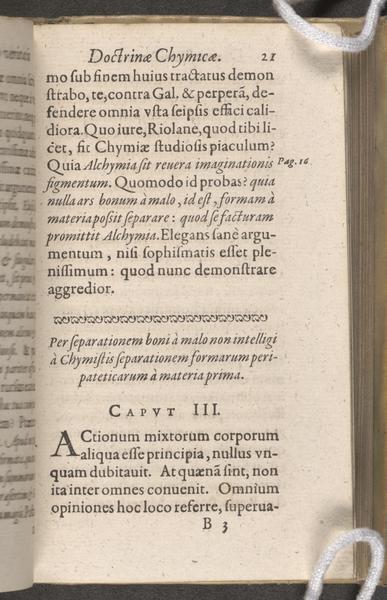 Doctrinæ Chymicæ. 21
mo ſub finem huius tractatus demon
ſtrabo, te, contra Gal. & perperā, de-
fendere omnia vſta ſeipſis effici cali-
diora. Quo iure, Riolane, quod tibi li-
cet, fit Chymiæ ſtudioſis piaculum?
Quia Alchymia ſit reuera imaginationis Pag. 16
figmentum. Quomodo id probas? quia
nulla ars bonum à malo, id eſt, formam à
materia poßit ſeparare: quod ſe facturam
promittit Alchymia. Elegans ſanè argu-
mentum, niſi ſophiſmatis eſſet ple-
niſſimum: quod nunc demonſtrare
aggredior.
Per ſeparationem boni à malo non intelligi
à Chymiſtis ſeparationem formarum peri-
pateticarum à materia prima.
CAPVT III.
ACtionum mixtorum corporum
aliqua eſſe principia, nullus vn-
quam dubitauit. At quænā ſint, non
ita inter omnes conuenit. Omnium
opiniones hoc loco referre, ſuperua-
B 3